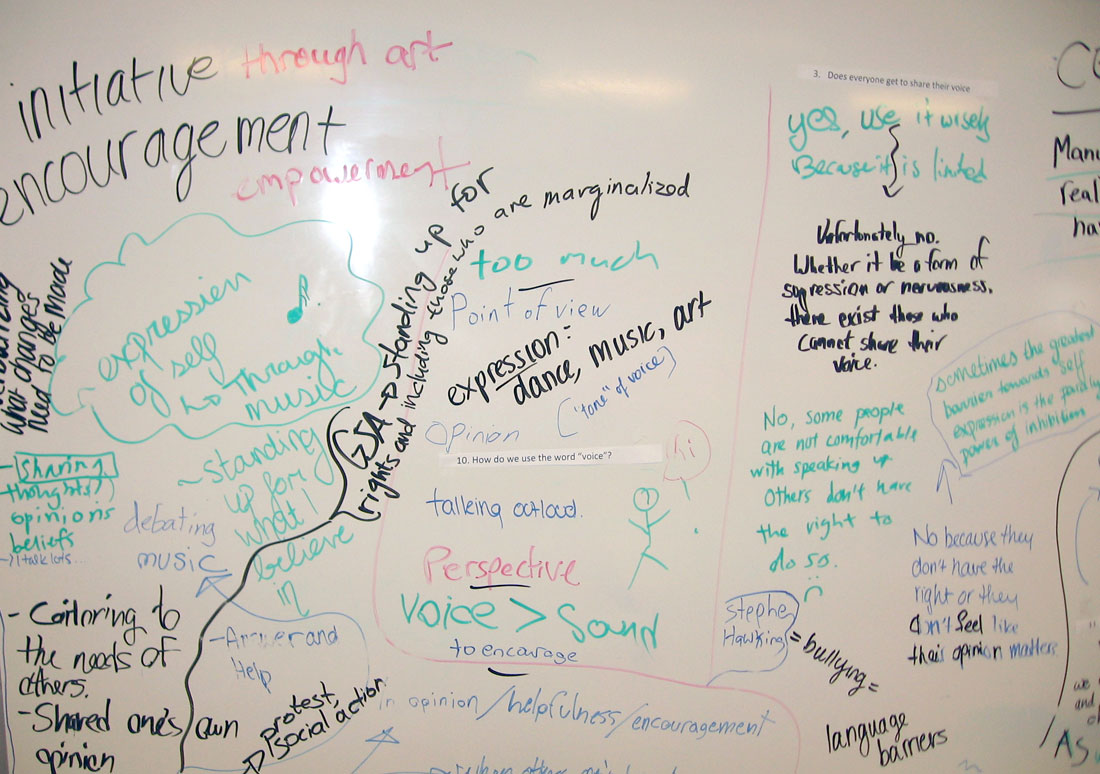 initiative through art
encouragement
empowerment
what changes
need to be made
expression
of self
through
music
GSA → standing up for
rights and including those who are marginalized
too much
Point of view
expression:
dance, music, art
("tone" of voice)
Opinion
10. How do we use the word "voice"?
hi
talking outloud.
Perspective
Voice > Sound
to encourage
- sharing
thoughts
opinions
beliefs
debating
music
~standing
up for
what I
believe
in
- Answer and
Help
- Catloring to
the needs of
others.
- Shared one's own
opinion
protest,
social action
in opinion/helpfulness/encouragement
3. Does everyone get to share their voice
yes, use it wisely
Because it is limited
Unfortunately no.
Whether it be a form of
supression or nervousness,
there exist those who
cannot share their
voice.
sometimes the greatest
barrier towards self
expression is the
power of inhibition
No, some people
are not comfortable
with speaking up
Others don't have
the right to
do so.
No because they
don't have the
right or they
don't feel like
their opinion matters.
Stephen
Hawking = bullying =
language
barriers
we
and
As